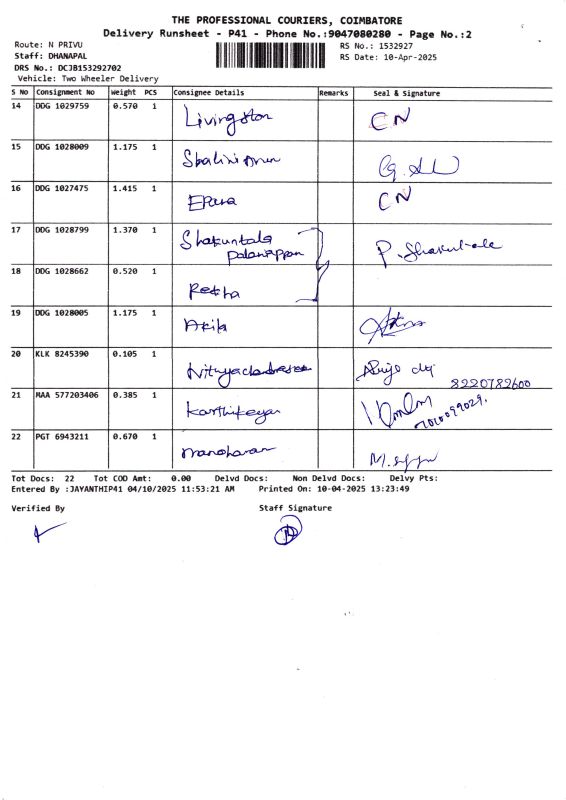 THE PROFESSIONAL COURIERS, COIMBATORE
Delivery Runsheet - P41 - Phone No.:9047080280 - Page No.:2
Route: N PRIVU RS No.: 1532927
Staff: DHANAPAL RS Date: 10-Apr-2025
DRS No.: DCJB153292702
Vehicle: Two Wheeler Delivery
S No Consignment No Weight PCS Consignee Details Remarks Seal & Signature
14 DDG 1029759 0.570 1 Livingston CN
15 DDG 1028009 1.175 1 Shalini Arun
16 DDG 1027475 1.415 1 CN
17 DDG 1028799 1.370 1 Shakuntala P. Shakuntala
Palaniappan
18 DDG 1028662 0.520 1 Rekha
19 DDG 1028005 1.175 1 Akila
20 KLK 8245390 0.105 1
8220782600
21 MAA 577203406 0.385 1 Karthikeyan
22 PGT 6943211 0.670 1 Manoharan
Tot Docs: 22 Tot COD Amt: 0.00 Delvd Docs: Non Delvd Docs: Delvy Pts:
Entered By :JAYANTHIP41 04/10/2025 11:53:21 AM Printed On: 10-04-2025 13:23:49
Verified By Staff Signature